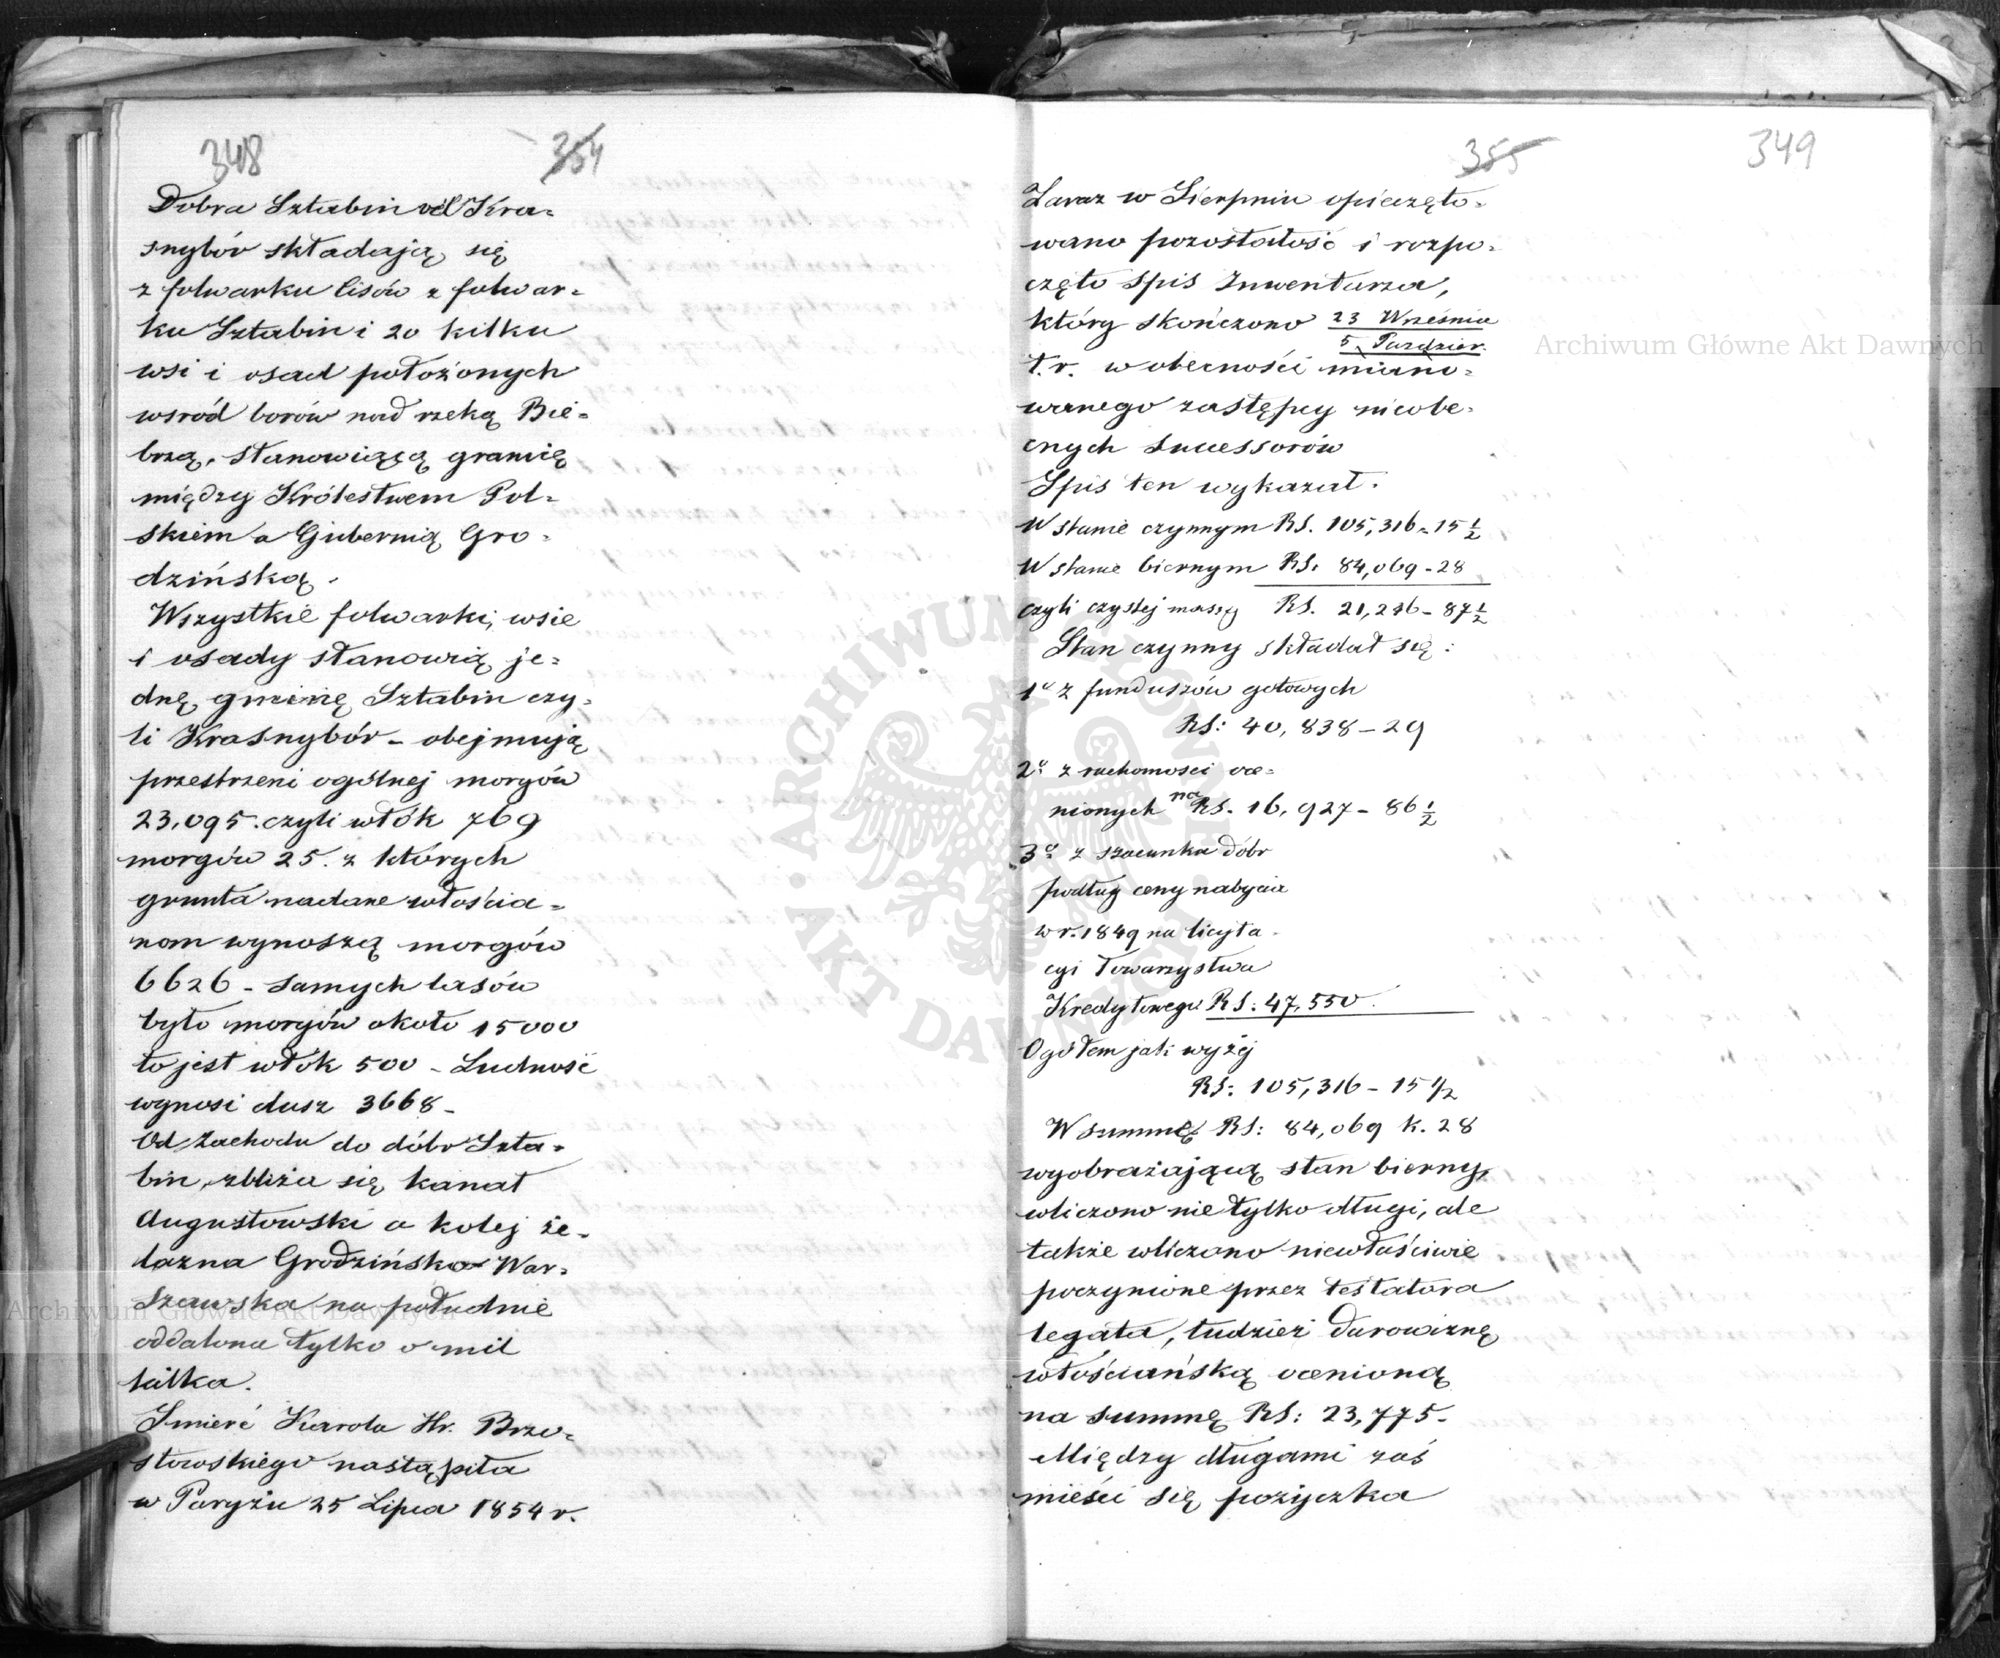 348 354
Dobra Sztabin vel Kra=
snybór składają się
z folwarku Lisów z folwar=
ku Sztabin i 20 kilku
wsi i osad położonych
wsród borów nad rzeką Bie=
brzą, stanowiącą granicę
między Królestwem Pol=
skiem a Gubernią Gro=
dzińską.
Wszystkie folwarki, wsie
i osady stanowią je=
dnę gminę Sztabin czy=
li Krasnybór - obejmują
przestrzeni ogólnej morgów
23,095. czyli włók 769
morgów 25. z których
grunta nadane włościa=
nom wynoszą morgów
6626 - samych lasów
było morgów około 15000
to jest włók 500 - Ludność
wynosi dusz 3668 -
Od Zachodu do dóbr Szta=
bin, zbliża się kanał
Augustowski a kolej że=
lazna Grodzińsko-War=
szawska na południe
oddalona tylko o mil
kilka.
Smierć Karola Hr. Brzo=
stowskiego nastąpiła
w Paryżu 25 Lipca 1854 r.
355 349
Zaraz w Sierpniu opieczęto=
wano pozostałość i rozpo=
częto spis Inwentarza,
który skończono 23 Września
5 Paździer.
t.r. w obecności miano=
wanego zastępcy nieobe=
cnych Sukcessorów
Spis ten wykazał.
W stanie czynnym RS. 105,316 - 15 1/2
W stanie biernym RS. 84,069 - 28
czyli czystej massy RS. 21,246 - 87 1/2
Stan czynny składał się:
1o z funduszów gotowych
RS: 40,838 - 29
2o z ruchomości oce=
nionych na RS. 16,927 - 86 1/2
3o z szacunku dóbr
podług ceny nabycia
w r. 1849 na licyta=
cyi Towarzystwa
Kredytowego RS: 47,550.
Ogółem jak wyżej
RS: 105,316 - 15 1/2
W summę RS: 84,069 k. 28
wyobrażającą stan bierny,
wliczono nie tylko długi, ale
także wliczono niewłaściwie
poczynione przez testatora
legata, tudzież darowiznę
włościańską ocenioną
na summę RS: 23,775 -
Między długami zaś
mieści się pożyczka
ARCHIWUM GŁÓWNE AKT DAWNYCH
Archiwum Główne Akt Dawnych
Archiwum Główne Akt Dawnych